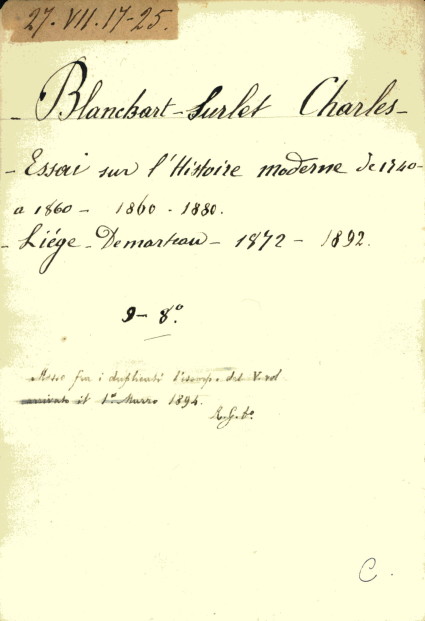 27. VII. 17-25.
- Blanchart-Surlet Charles-
- Essai sur l'Histoire moderne de 1740-
a 1860 - 1860 - 1880.
- Liége - Demarteau - 1872 - 1892.
9 - 8º.
Messo fra i duplicati l'esemp. del Vol
arrivato il 1º Marzo 1894.
C.